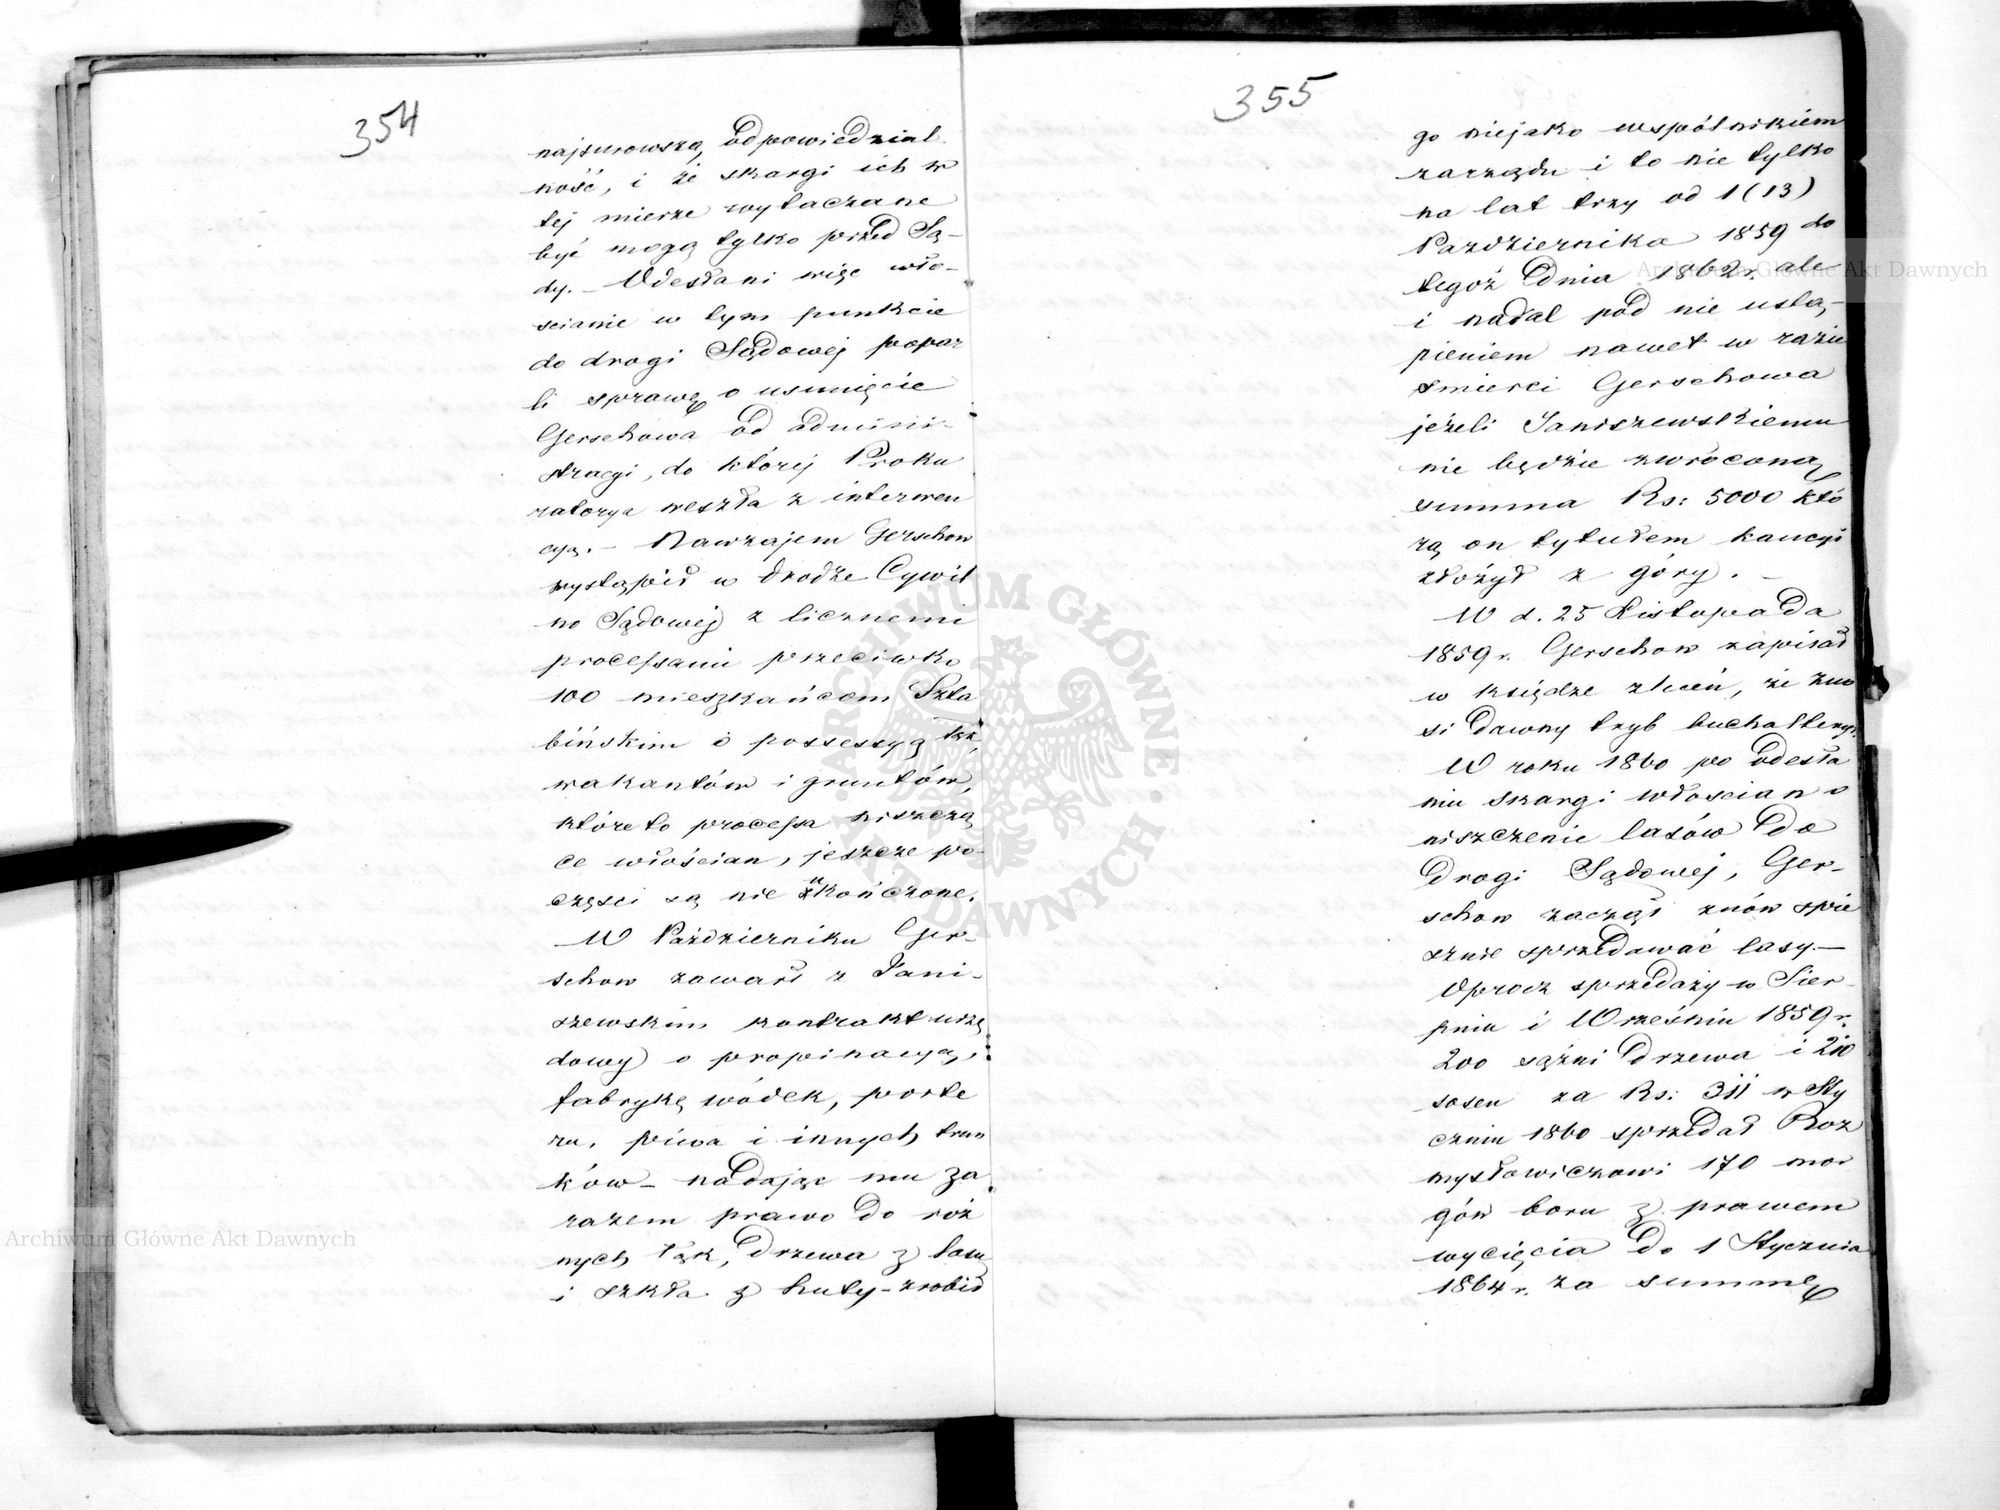 354
najsurowszą odpowiedzial
ność, i że skargi ich w
tej mierze wytaczane
być mogą tylko przed Są-
dy. – Odesłani więc wło-
scianie w tym punkcie
do drogi Sądowej popar
li sprawę o usunięcie
Gerschowa od admini-
stracyi, do której Proku
ratorya weszła z interwen
cyą. – Nawzajem Gerschow
wystąpił w drodze Cywil
no Sądowej z licznemi
processami przeciwko
100 mieszkańcom Szta
bińskim o possessyą tzk,
wakantów i gruntów,
które to processa niszczą
ce włościan, jeszcze po
częsci są nie ukończone.
W Październiku Ger-
schow zawarł z Jani-
szewskim kontrakt urzę
dowy o propinacyą,
fabrykę wódek, porte
ru, piwa i innych trun
ków – nadając mu za
razem prawo do róż
nych łąk, drzewa z lasu
i szkła z huty – zrobił
355
go niejako wspólnikiem
zarządu i to nie tylko
na lat trzy od 1 (13)
Pazdziernika 1859 do
tegoż dnia 1862 r. ale
i nadal pod nie ustą-
pieniem nawet w razie
smierci Gerschowa
jeżeli Janiszewskiemu
nie będzie zwróconą
summa Rs: 5000 któ
rą on tytułem kaucyi
złożył z góry. –
W d. 25 Listopada
1859 r. Gerschow zapisał
w księdze zleceń, że zno
si dawny tryb buchalteryi.
W roku 1860 po odesła
niu skargi włoscian o
niszczenie lasów do
drogi Sądowej, Ger-
schow zaczął znów spie
sznie sprzedawać lasy. –
Oprocz sprzedaży w Sier-
pniu i Wrześniu 1859 r.
200 sążni drzewa i 210
sosen za Rs: 311 w Sty
czniu 1860 sprzedał Roz
mysłowiczowi 170 mor
gów boru z prawem
wycięcia do 1 Stycznia
1864 r. za summę
Archiwum Główne Akt Dawnych
ARCHIWUM GŁÓWNE AKT DAWNYCH
Archiwum Główne Akt Dawnych